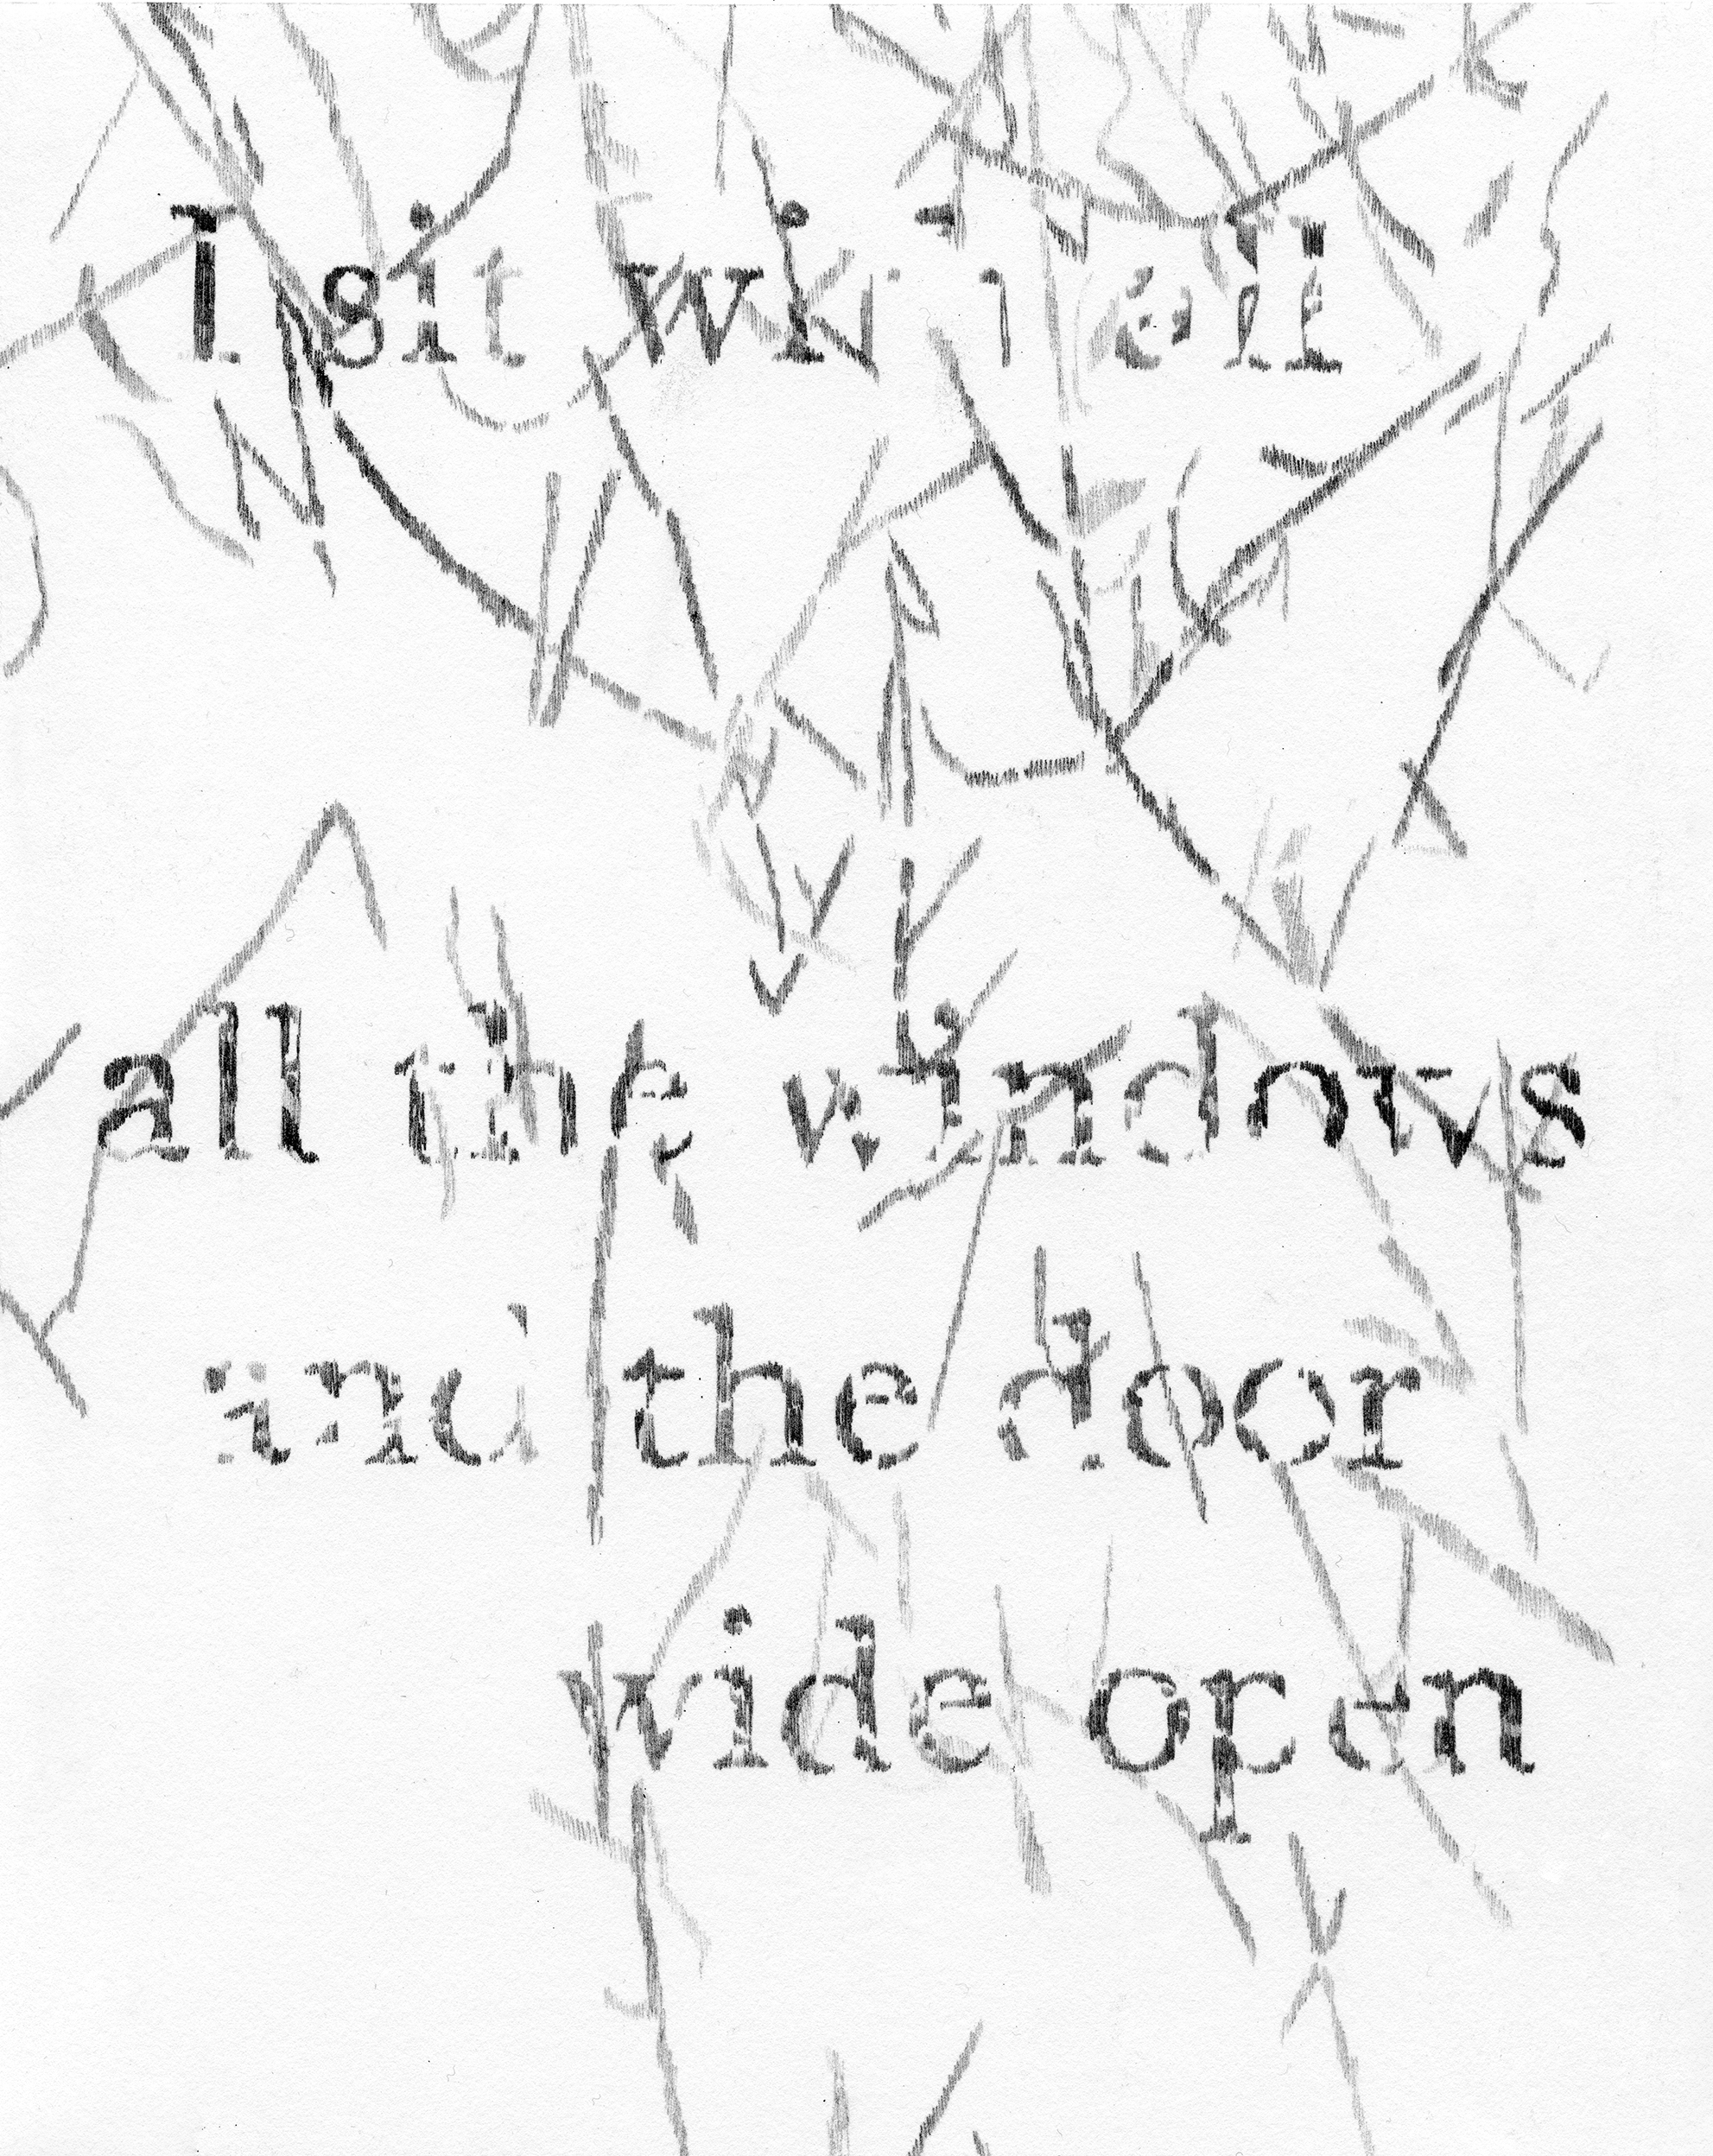 I sit with all
all the windows
and the door
wide open